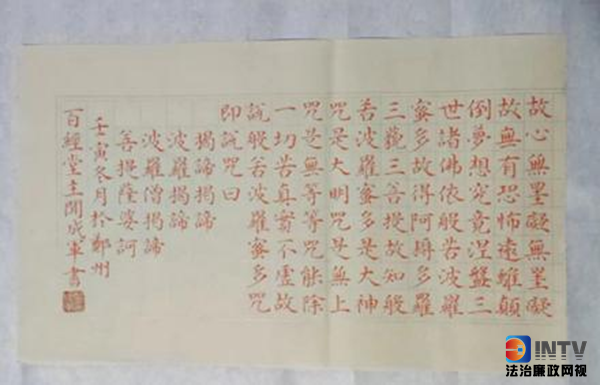 故心無罣礙無罣礙
故無有恐怖遠離顛
倒夢想究竟涅槃三
世諸佛依般若波羅
蜜多故得阿耨多羅
三藐三菩提故知般
若波羅蜜多是大神
咒是大明咒是無上
咒是無等等咒能除
一切苦真實不虛故
說般若波羅蜜多咒
即說咒曰
揭諦揭諦
波羅揭諦
波羅僧揭諦
菩提薩婆訶
壬寅冬月於鄭州
百經堂主閆成軍書
INTV
法治廉政网视